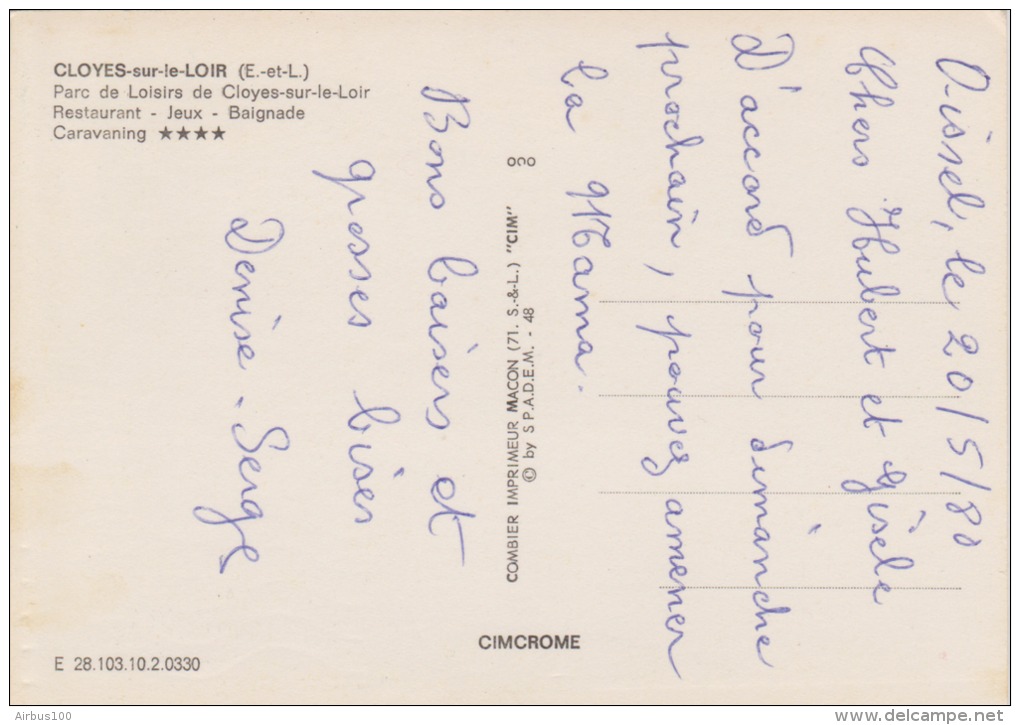 CLOYES-sur-le-LOIR (E.-et-L.)
Parc de Loisirs de Cloyes-sur-le-Loir
Restaurant - Jeux - Baignade
Caravaning ★★★★
Oissel, le 20/5/80
Chers Hubert et Gisèle
D'accord pour dimanche
prochain, pouvez amener
la Mama.
Bons baisers et
grosses bises
Denise. Serge
COMBIER IMPRIMEUR MACON (71. S.-&-L.) "CIM"
© by S P.A.D.E.M. - 48
CIMCROME
E 28.103.10.2.0330
Airbus100
http://www.delcampe.net